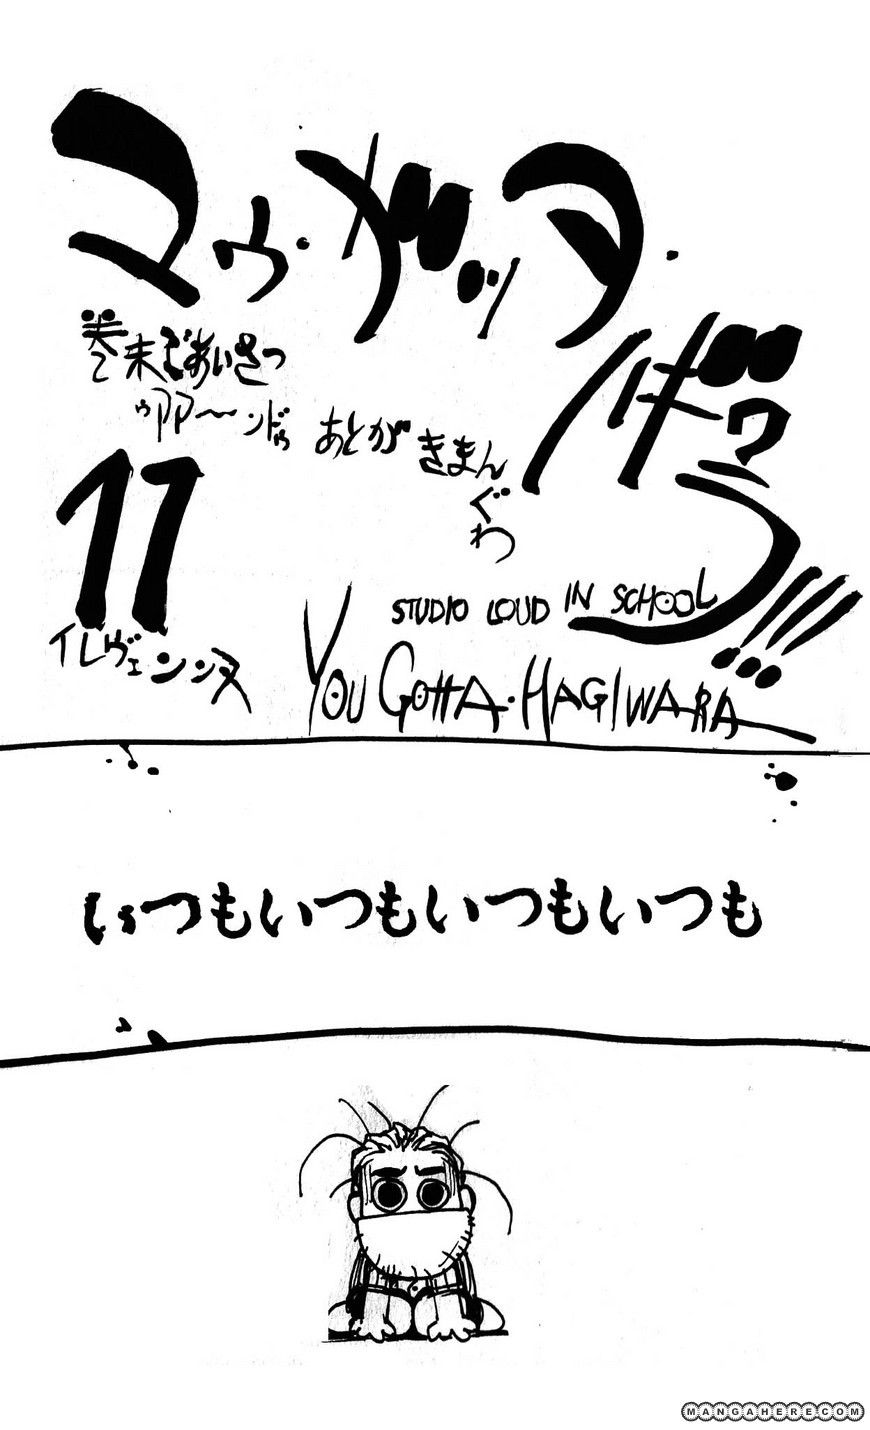 マウ・ガッタ・
巻末ごあいさつ
あとがきまんぐわ
11
イレヴェンンヌ
STUDIO LOUD IN SCHOOL
YOU GOTTA・HAGIWARA
いつもいつもいつもいつも
MANGAHERE.COM